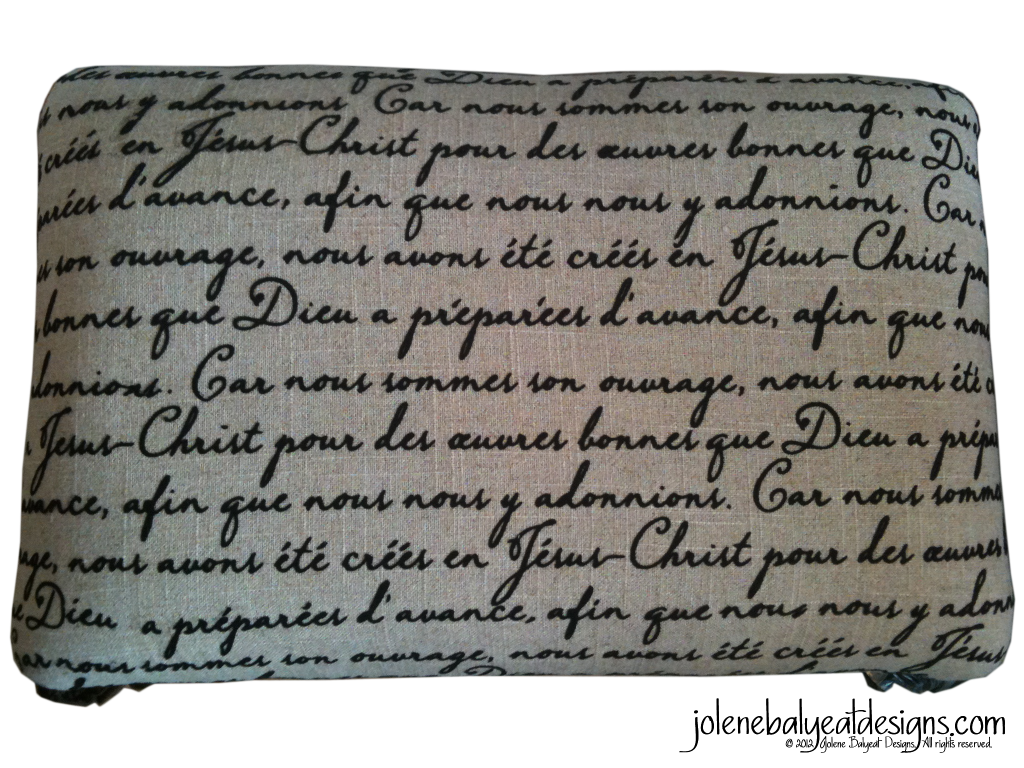 des œuvres bonnes que Dieu a préparées d'avance, afin
nous y adonnions. Car nous sommes son ouvrage, nous a
créés en Jésus-Christ pour des œuvres bonnes que Dieu
arées d'avance, afin que nous nous y adonnions. Car n
us son ouvrage, nous avons été créés en Jésus-Christ pour
bonnes que Dieu a préparées d'avance, afin que nous
donnions. Car nous sommes son ouvrage, nous avons été c
Jesus-Christ pour des œuvres bonnes que Dieu a prépa
avance, afin que nous nous y adonnions. Car nous somme
age, nous avons été créés en Jésus-Christ pour des œuvres
e Dieu a préparées d'avance, afin que nous nous y adonn
Car nous sommes son ouvrage, nous avons été créés en Jésus
jolenebalyeatdesigns.com
© 2012 Jolene Balyeat Designs. All rights reserved.